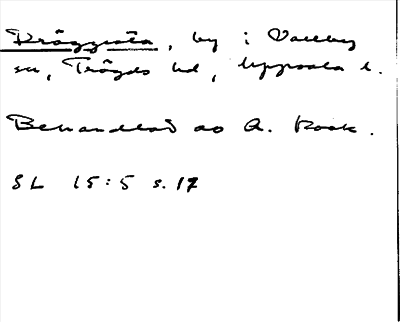 Kräggesta, by i Vallby
sn, Trögds hd, Uppsala l.
Behandlad av A. Rostvik.
SL 15:5 s. 17